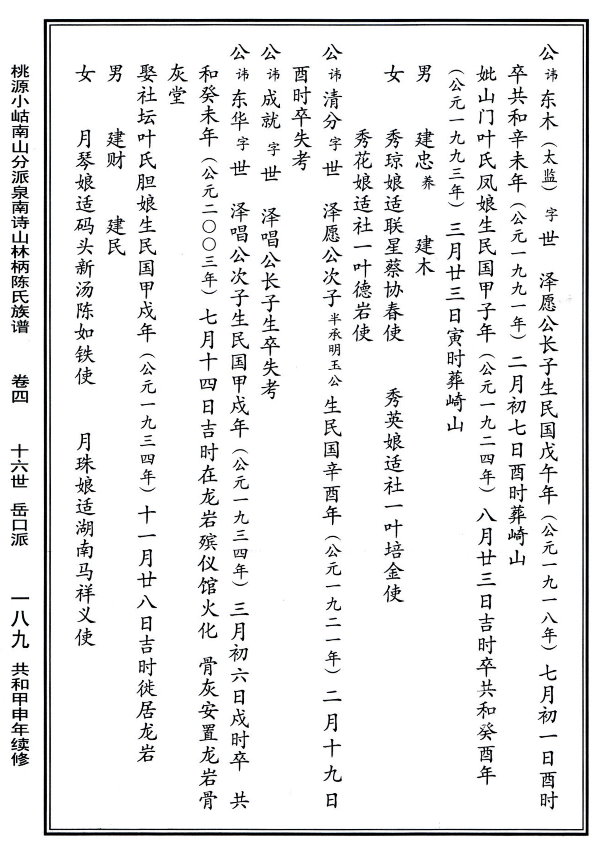 公讳东木（太监）字世　泽愿公长子生民国戊午年（公元一九一八年）七月初一日酉时
卒共和辛未年（公元一九九一年）二月初七日酉时葬崎山
妣山门叶氏凤娘生民国甲子年（公元一九二四年）八月廿三日吉时卒共和癸酉年
（公元一九九三年）三月廿三日寅时葬崎山
男　建忠养　建木
女　秀琼娘适联星蔡协春使　秀英娘适社一叶培金使
秀花娘适社一叶德岩使
公讳清分字世　泽愿公次子半承明玉公生民国辛酉年（公元一九二一年）二月十九日
酉时卒失考
公讳成就字世　泽唱公长子生卒失考
公讳东华字世　泽唱公次子生民国甲戌年（公元一九三四年）三月初六日戌时卒　共
和癸未年（公元二〇〇三年）七月十四日吉时在龙岩殡仪馆火化　骨灰安置龙岩骨
灰堂
娶社坛叶氏胆娘生民国甲戌年（公元一九三四年）十一月廿八日吉时徙居龙岩
男　建财　建民
女　月琴娘适码头新汤陈如铁使　月珠娘适湖南马祥义使
桃源小岵南山分派泉南诗山林柄陈氏族谱　卷四　十六世　岳口派　一八九　共和甲申年续修